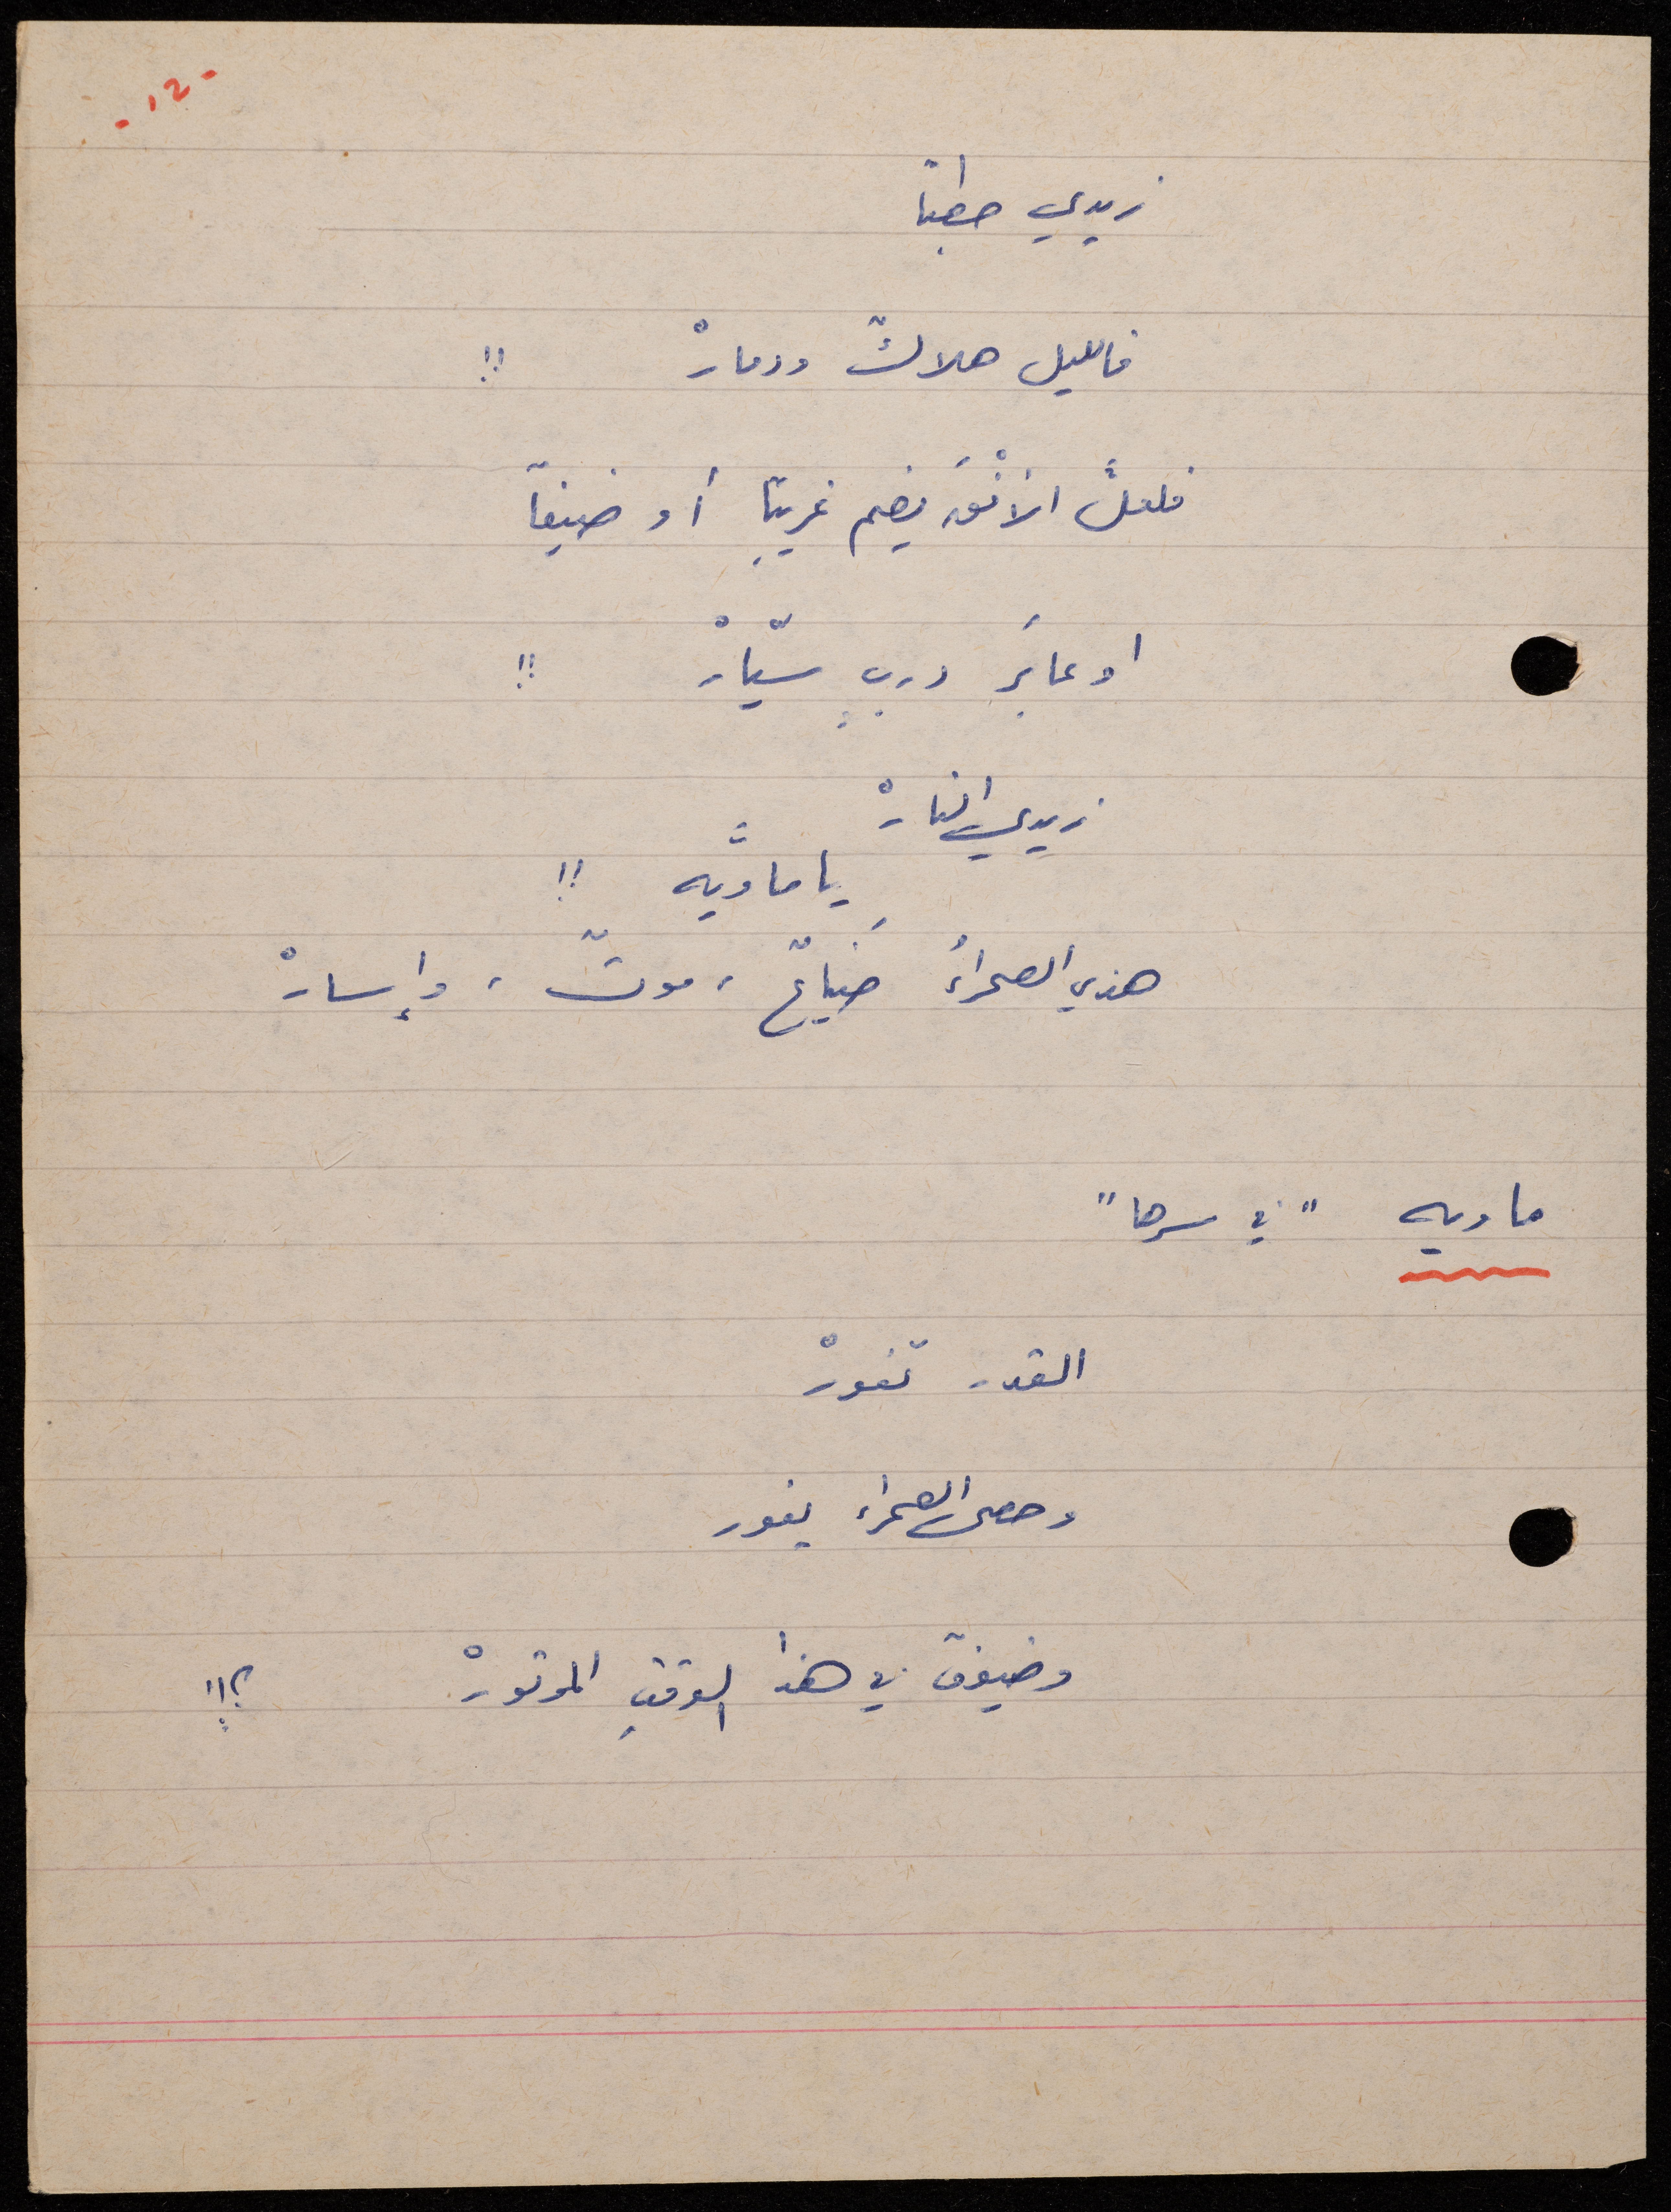 - ١٢ -
زيدي حطبًا
فالليل هلاكٌ ودمارْ !!
فلعلَّ الأفْقَ يضم غريبًا أو ضيفًا
او عابرَ دربٍ سيّارْ !!
زيدي النارْ
يا ماويَّه !!
هذي الصحراءُ ضَياعٌ ، موتٌ ، وإسارْ
ماويه "في سرها"
القدر تفورْ
وحصى الصحراء يفور
وضيوف في هذا الوقتِ الموتورْ ؟!!